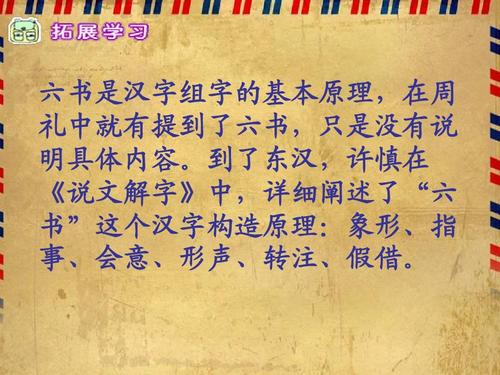 拓展学习
六书是汉字组字的基本原理，在周
礼中就有提到了六书，只是没有说
明具体内容。到了东汉，许慎在
《说文解字》中，详细阐述了“六
书”这个汉字构造原理：象形、指
事、会意、形声、转注、假借。